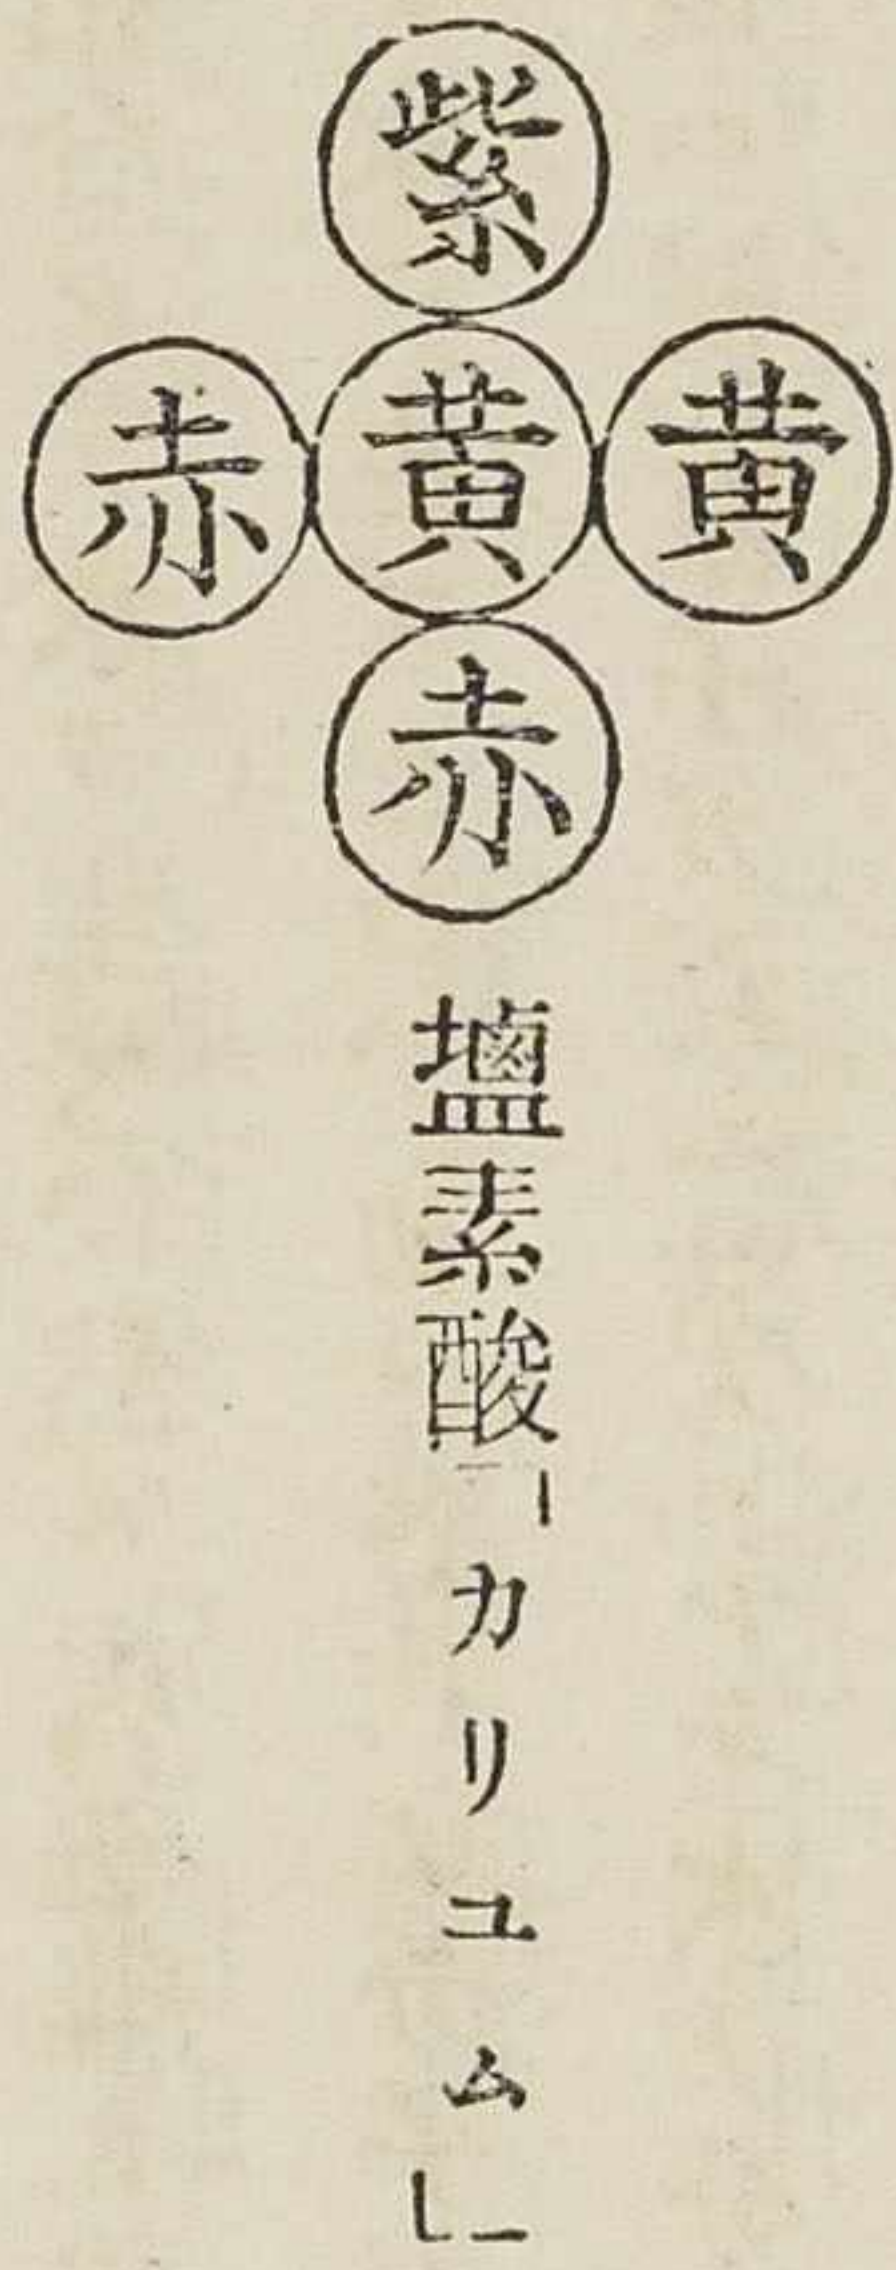 紫
赤黄黄
赤
塩素酸「カリユム」